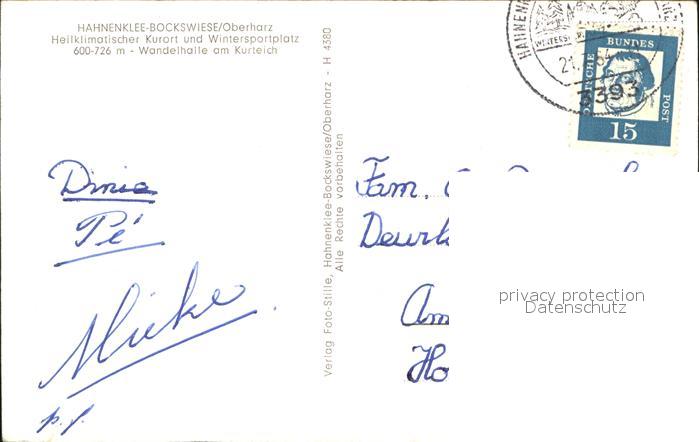 HAHNENKLEE-BOCKSWIESE/Oberharz
Heilklimatischer Kurort und Wintersportplatz
600-726 m - Wandelhalle am Kurteich
Dinie
Pé
Mieke.
p.f.
Verlag Foto-Stille, Hahnenklee-Bockswiese/Oberharz - H 4380
Alle Rechte vorbehalten
HAHNENK
21. 64
3393
DEUTSCHE
BUNDES
POST
15
Fam.
Deurl
Am
Ho
privacy protection
Datenschutz